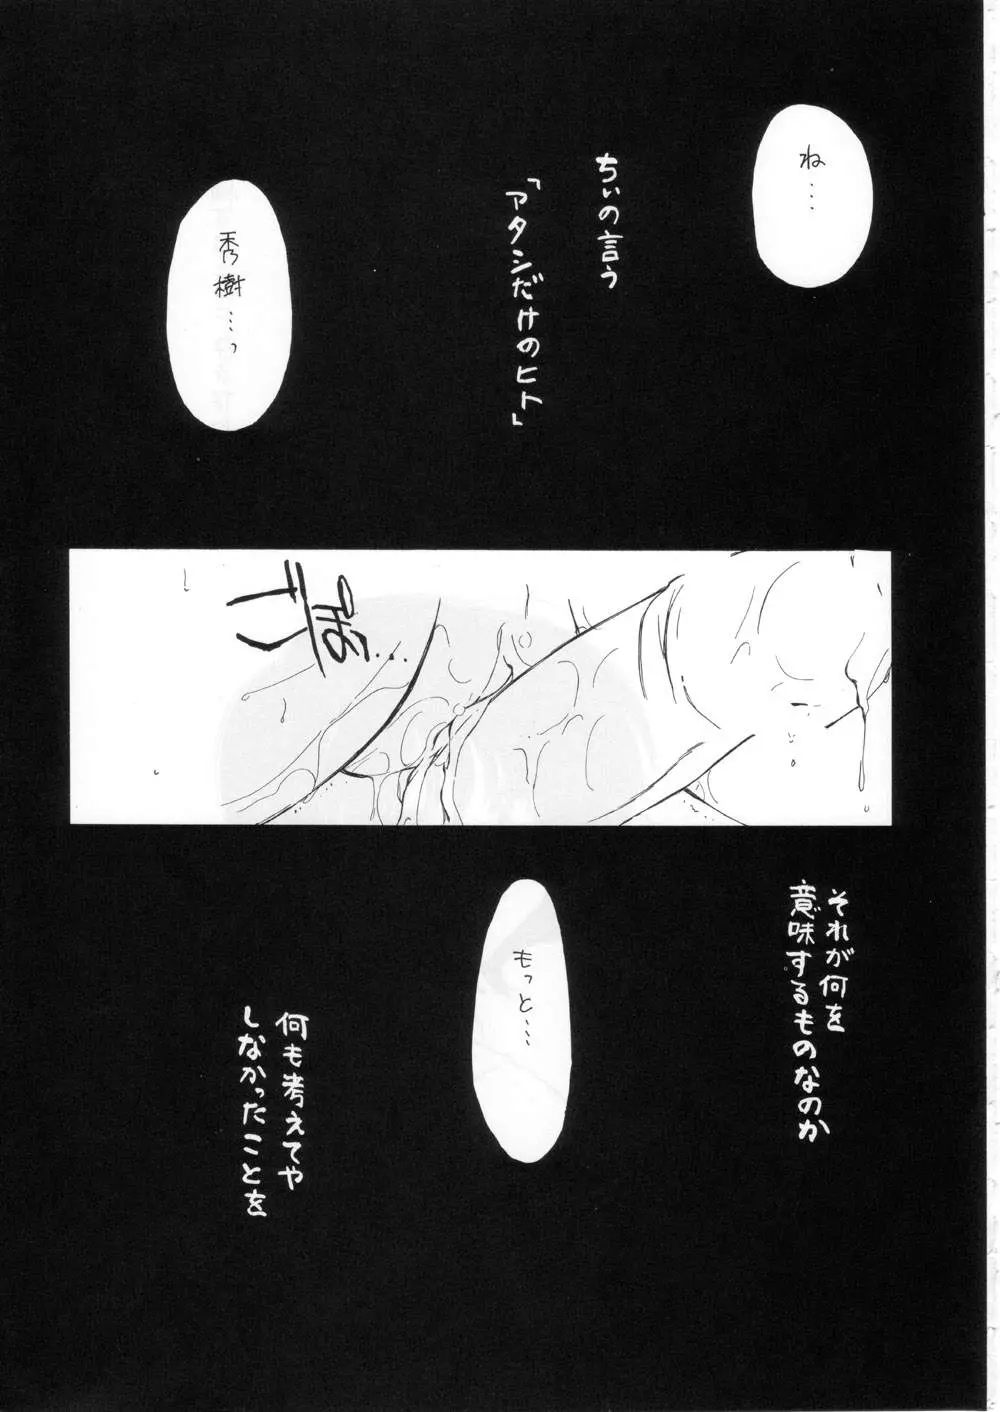 ね…
ちぃの言う
「アタシだけのヒト」
秀樹…っ
ごぽ…
それが何を
意味するものなのか
もっと…
何も考えてや
しなかったことを